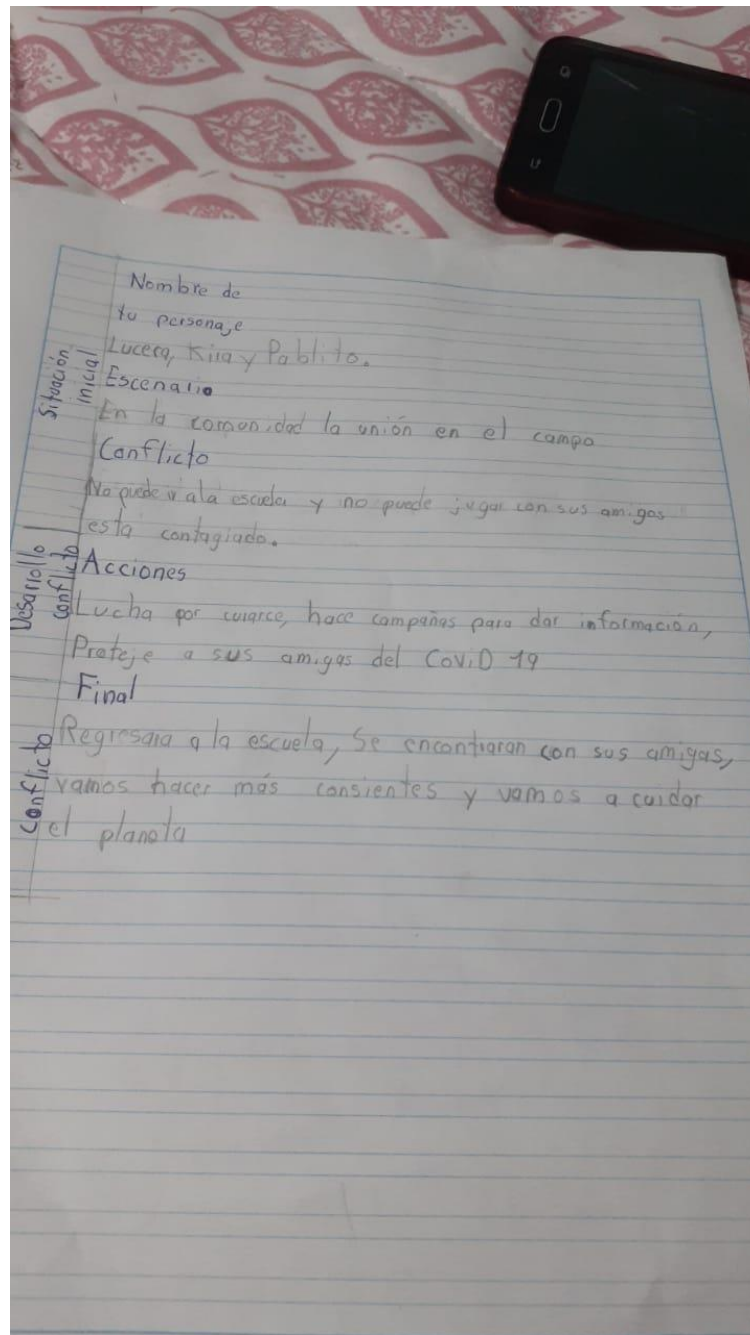 Nombre de
tu personaje
Lucero, Kira y Pablito.
Situación
inicial
Escenario
En la comunidad la unión en el campo
Conflicto
No puede ir a la escuela y no puede jugar con sus amigos
esta contagiado.
Desarrollo
conflicto
Acciones
Lucha por curarce, hace campañas para dar información,
Proteje a sus amigos del CoViD 19
Final
Conflicto
Regresara a la escuela, Se encontraran con sus amigas,
vamos hacer más consientes y vamos a cuidar
el planeta